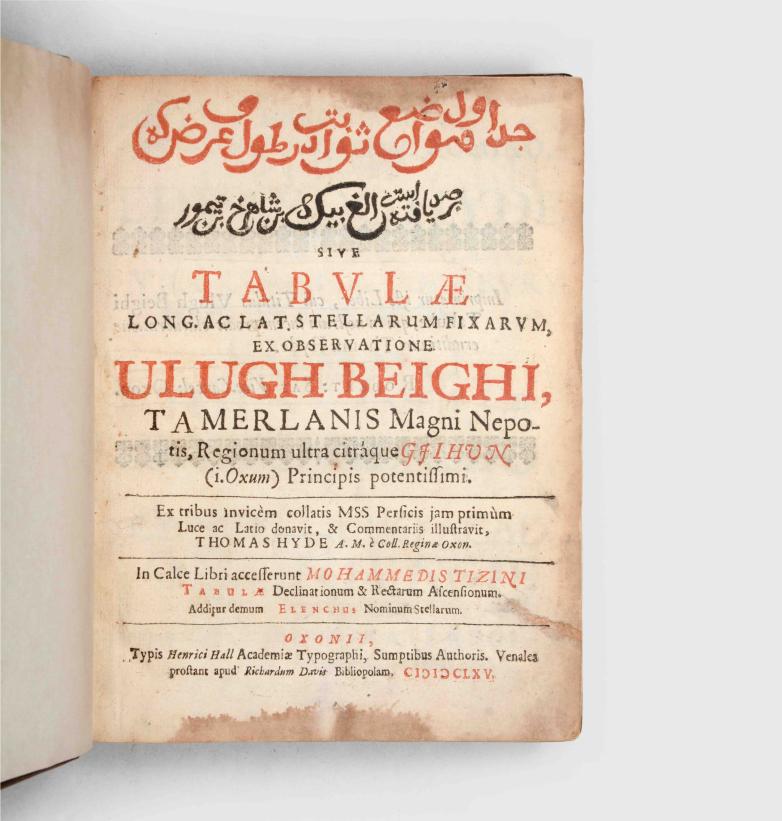 جداول مواضع ثوابت در طول و عرض که
برصد یافته است الغ بیک بن شاهرخ بن تیمور
SIVE
TABVLÆ
LONG. AC LAT. STELLARUM FIXARVM,
EX OBSERVATIONE
ULUGH BEIGHI,
TAMERLANIS Magni Nepo-
tis, Regionum ultra citráque GJIHUN
(i. Oxum) Principis potentiſſimi.
Ex tribus invicèm collatis MSS Perſicis jam primùm
Luce ac Latio donavit, & Commentariis illuſtravit,
THOMAS HYDE A. M. è Coll. Reginæ Oxon.
In Calce Libri acceſſerunt MOHAMMEDIS TIZINI
TABULÆ Declinationum & Rectarum Aſcenſionum.
Additur demum ELENCHUS Nominum Stellarum.
OXONII,
Typis Henrici Hall Academiæ Typographi, Sumptibus Authoris. Venales
proſtant apud Richardum Davis Bibliopolam, CIƆIƆCLXV.